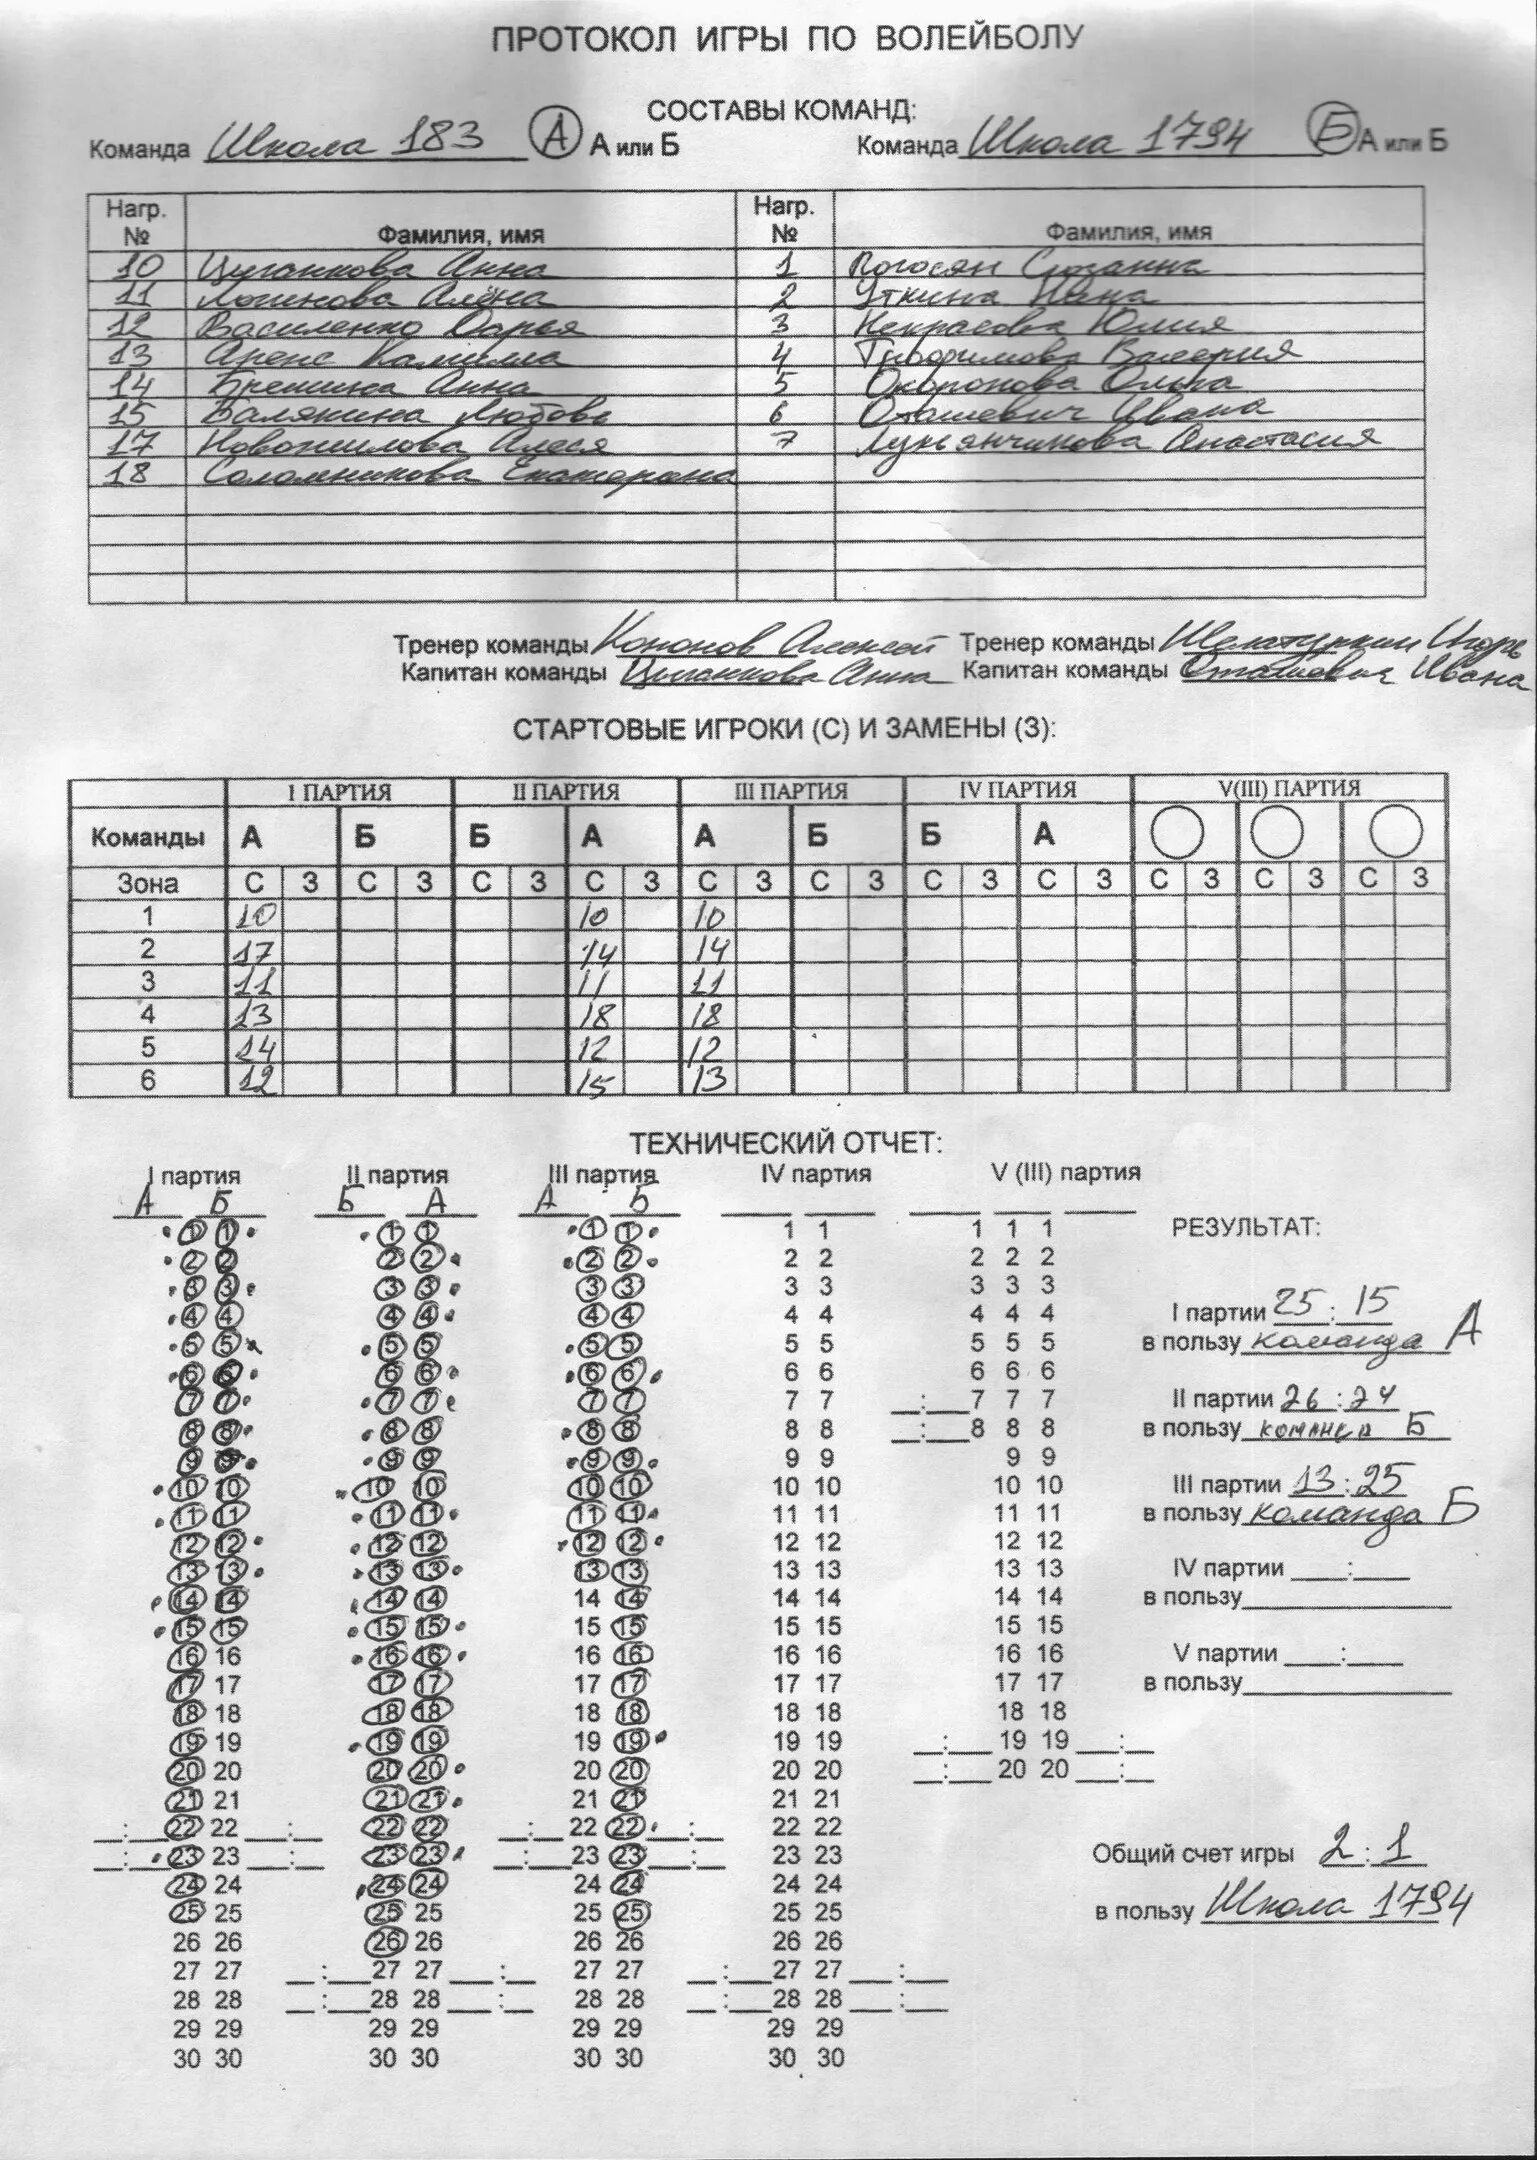 ПРОТОКОЛ ИГРЫ ПО ВОЛЕЙБОЛУ
СОСТАВЫ КОМАНД:
Команда Школа 183 А А или Б Команда Школа 1794 Б А или Б
Нагр. № Фамилия, имя Нагр. № Фамилия, имя
10 Цыганкова Анна 1 Погосян Сюзанна
11 Логинова Алёна 2 Уткина Нана
12 Василенко Дарья 3 Некрасова Юлия
13 Аренс Камилла 4 Валерия
14 Анна 5 Ольга
15 Балякина Любовь 6 Оташевич Ивана
17 Новожилова Алеся 7 Лукьянчикова Анастасия
18 Соломникова Екатерина
Тренер команды Кононов Алексей Тренер команды Шелатуркин Игорь
Капитан команды Цыганкова Анна Капитан команды Оташевич Ивана
СТАРТОВЫЕ ИГРОКИ (С) И ЗАМЕНЫ (З):
I ПАРТИЯ II ПАРТИЯ III ПАРТИЯ IV ПАРТИЯ V(III) ПАРТИЯ
Команды А Б Б А А Б Б А
Зона С З С З С З С З С З С З С З С З С З С З С З
1 10 10 10
2 17 14 14
3 11 11 11
4 13 18 18
5 14 12 12
6 12 15 13
ТЕХНИЧЕСКИЙ ОТЧЕТ:
I партия II партия III партия IV партия V (III) партия
А Б Б А А Б
1 1 1 1 1 1 1 1 1 1 1 РЕЗУЛЬТАТ:
2 2 2 2 2 2 2 2 2 2 2
3 3 3 3 3 3 3 3 3 3 3
4 4 4 4 4 4 4 4 4 4 4 I партии 25 : 15
5 5 5 5 5 5 5 5 5 5 5 в пользу команда А
6 6 6 6 6 6 6 6 6 6 6
7 7 7 7 7 7 7 7 __:__ 7 7 7 II партии 26 : 24
8 8 8 8 8 8 8 8 __:__ 8 8 8 в пользу команда Б
9 9 9 9 9 9 9 9 9 9
10 10 10 10 10 10 10 10 10 10 III партии 13 : 25
11 11 11 11 11 11 11 11 11 11 в пользу команда Б
12 12 12 12 12 12 12 12 12 12
13 13 13 13 13 13 13 13 13 13 IV партии __:__
14 14 14 14 14 14 14 14 14 14 в пользу
15 15 15 15 15 15 15 15 15 15
16 16 16 16 16 16 16 16 16 16 V партии __:__
17 17 17 17 17 17 17 17 17 17 в пользу
18 18 18 18 18 18 18 18 18 18
19 19 19 19 19 19 19 19 __:__ 19 19 __:__
20 20 20 20 20 20 20 20 __:__ 20 20 __:__
21 21 21 21 21 21 21 21
__:__ 22 22 __:__ 22 22 __:__ 22 22 __:__ 22 22
__:__ 23 23 __:__ 23 23 __:__ 23 23 __:__ 23 23 Общий счет игры 2 : 1
24 24 24 24 24 24 24 24
25 25 25 25 25 25 25 25 в пользу Школа 1794
26 26 26 26 26 26 26 26
27 27 __:__ 27 27 __:__ 27 27 __:__ 27 27 __:__
28 28 __:__ 28 28 __:__ 28 28 __:__ 28 28 __:__
29 29 29 29 29 29 29 29
30 30 30 30 30 30 30 30